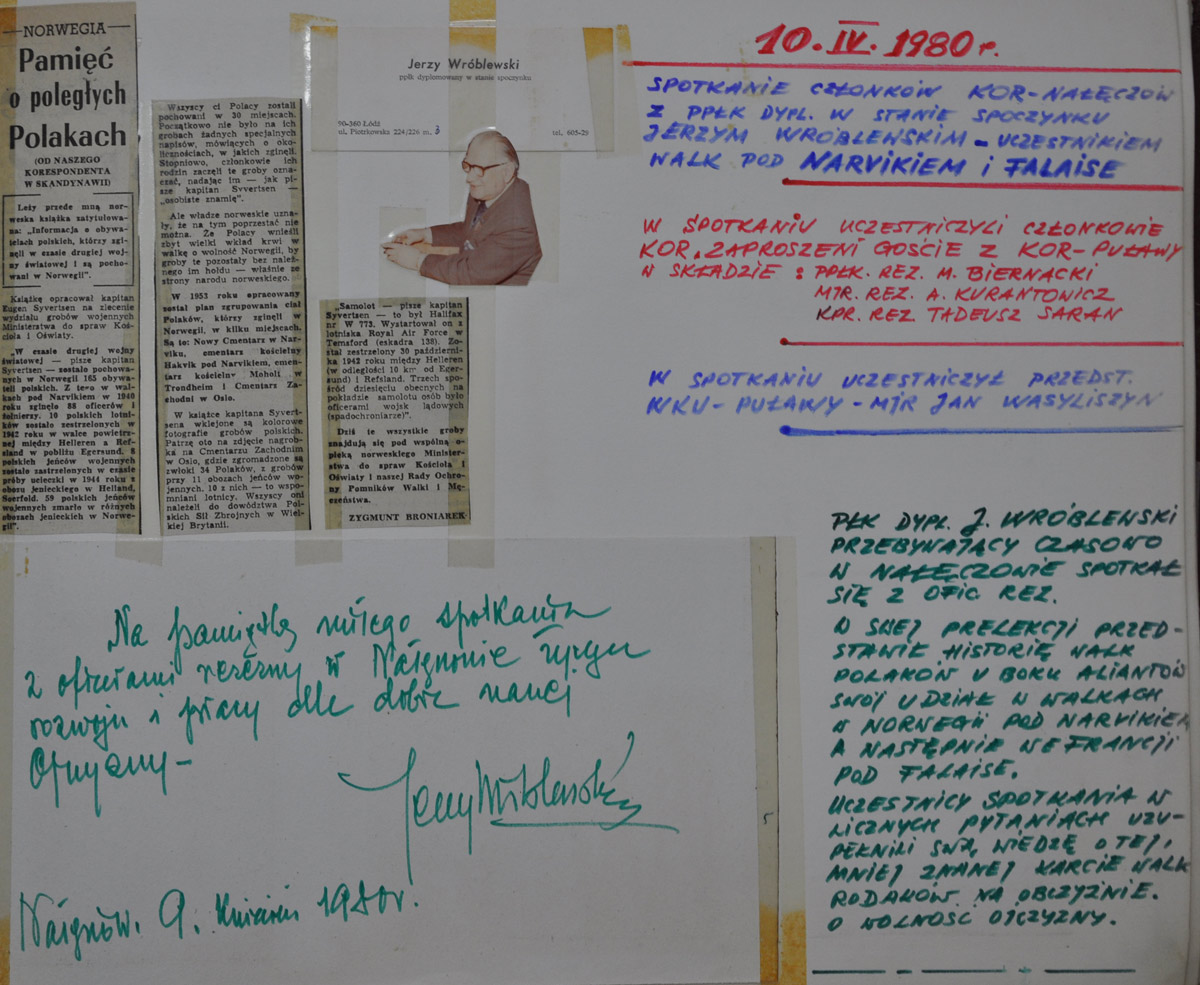 NORWEGIA
Pamięć
o poległych
Polakach
(OD NASZEGO
KORESPONDENTA
W SKANDYNAWII)
Leży przede mną nor-
weska książka zatytułowa-
na: „Informacja o obywa-
telach polskich, którzy zgi-
nęli w czasie drugiej wojny
światowej i są pocho-
wani w Norwegii".
Książkę opracował kapitan
Eugen Syvertsen na zlecenie
wydziału grobów wojennych
Ministerstwa do spraw Koś-
cioła i Oświaty.
„W czasie drugiej wojny
światowej — pisze kapitan
Syvertsen — zostało pochowa-
nych w Norwegii 165 obywa-
teli polskich. Z tego w wal-
kach pod Narvikiem w 1940
roku zginęło 88 oficerów i
żołnierzy. 10 polskich lotni-
ków zostało zestrzelonych w
1942 roku w walce powietrz-
nej między Helleren a Ref-
sland w pobliżu Egersund. 8
polskich jeńców wojennych
zostało zastrzelonych w czasie
próby ucieczki w 1944 roku z
obozu jenieckiego w Helland,
Soerfold. 59 polskich jeńców
wojennych zmarło w różnych
obozach jenieckich w Norwe-
gii".
Wszyscy ci Polacy zostali
pochowani w 30 miejscach.
Początkowo nie było na ich
grobach żadnych specjalnych
napisów, mówiących o oko-
licznościach, w jakich zginęli.
Stopniowo, członkowie ich
rodzin zaczęli te groby ozna-
czać, nadając im — jak pi-
sze kapitan Syvertsen —
„osobiste znamię".
Ale władze norweskie uzna-
ły, że na tym poprzestać nie
można. Że Polacy wnieśli
zbyt wielki wkład krwi w
walkę o wolność Norwegii, by
groby te pozostały bez należ-
nego im hołdu — właśnie ze
strony narodu norweskiego.
W 1953 roku opracowany
został plan zgrupowania ciał
Polaków, którzy zginęli w
Norwegii, w kilku miejscach.
Są to: Nowy Cmentarz w Nar-
viku, cmentarz kościelny
Hakvik pod Narvikiem, cmen-
tarz kościelny Moholt w
Trondheim i Cmentarz Za-
chodni w Oslo.
W książce kapitana Syvert-
sena wklejone są kolorowe
fotografie grobów polskich.
Patrzę oto na zdjęcie nagrob-
ka na Cmentarzu Zachodnim
w Oslo, gdzie zgromadzone są
zwłoki 34 Polaków, z grobów
przy 11 obozach jeńców wo-
jennych. 10 z nich — to wspo-
mniani lotnicy. Wszyscy oni
należeli do dowództwa Pol-
skich Sił Zbrojnych w Wiel-
kiej Brytanii.
„Samolot — pisze kapitan
Syvertsen — to był Halifax
nr W 773. Wystartował on z
lotniska Royal Air Force w
Temsford (eskadra 138). Zo-
stał zestrzelony 30 paździer-
nika 1942 roku między Helleren
(w odległości 10 km od Eger-
sund) i Refsland. Trzech spo-
śród dziesięciu obecnych na
pokładzie samolotu osób było
oficerami wojsk lądowych
(spadochroniarze)".
Dziś te wszystkie groby
znajdują się pod wspólną o-
pieką norweskiego Minister-
stwa do spraw Kościoła i
Oświaty i naszej Rady Ochro-
ny Pomników Walki i Mę-
czeństwa.
ZYGMUNT BRONIAREK
Jerzy Wróblewski
ppłk dyplomowany w stanie spoczynku
90-360 Łódź
ul. Piotrkowska 224/226 m. 3
tel. 605-29
10.IV.1980 r.
SPOTKANIE CZŁONKÓW KOR-NAŁĘCZÓW
Z PPŁK DYPL. W STANIE SPOCZYNKU
JERZYM WRÓBLEWSKIM - UCZESTNIKIEM
WALK POD NARVIKIEM i FALAISE
W SPOTKANIU UCZESTNICZYLI CZŁONKOWIE
KOR, ZAPROSZENI GOŚCIE Z KOR-PUŁAWY
W SKŁADZIE: PPŁK. REZ. M. BIERNACKI
MJR. REZ. A. KURANTOWICZ
KPR. REZ. TADEUSZ SARAN
W SPOTKANIU UCZESTNICZYŁ PRZEDST.
WKU-PUŁAWY-MJR JAN WASYLISZYN
PŁK DYPL. J. WRÓBLEWSKI
PRZEBYWAJĄCY CZASOWO
W NAŁĘCZOWIE SPOTKAŁ
SIĘ Z OFIC REZ.
W SWEJ PRELEKCJI PRZED-
STAWIŁ HISTORIĘ WALK
POLAKÓW U BOKU ALIANTÓW
SWÓJ UDZIAŁ W WALKACH
W NORWEGII POD NARVIKIEM
A NASTĘPNIE WE FRANCJI
POD FALAISE.
UCZESTNICY SPOTKANIA W
LICZNYCH PYTANIACH UZU-
PEŁNILI SWĄ WIEDZĘ O TEJ,
MNIEJ ZNANEJ KARCIE WALK
RODAKÓW NA OBCZYŹNIE.
O WOLNOŚĆ OJCZYZNY.
Na pamiątkę miłego spotkania
z oficerami rezerwy w Nałęczowie życzę
rozwoju i pracy dla dobra naszej
Ojczyzny -
Jerzy Wróblewski
Nałęczów. 9. Kwiecień 1980r.
5